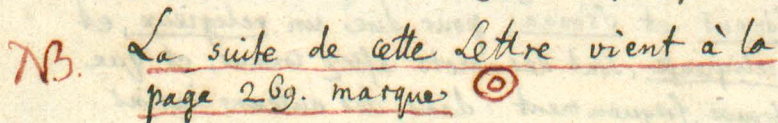 NB. La suite de cette Lettre vient à la
page 269. marque